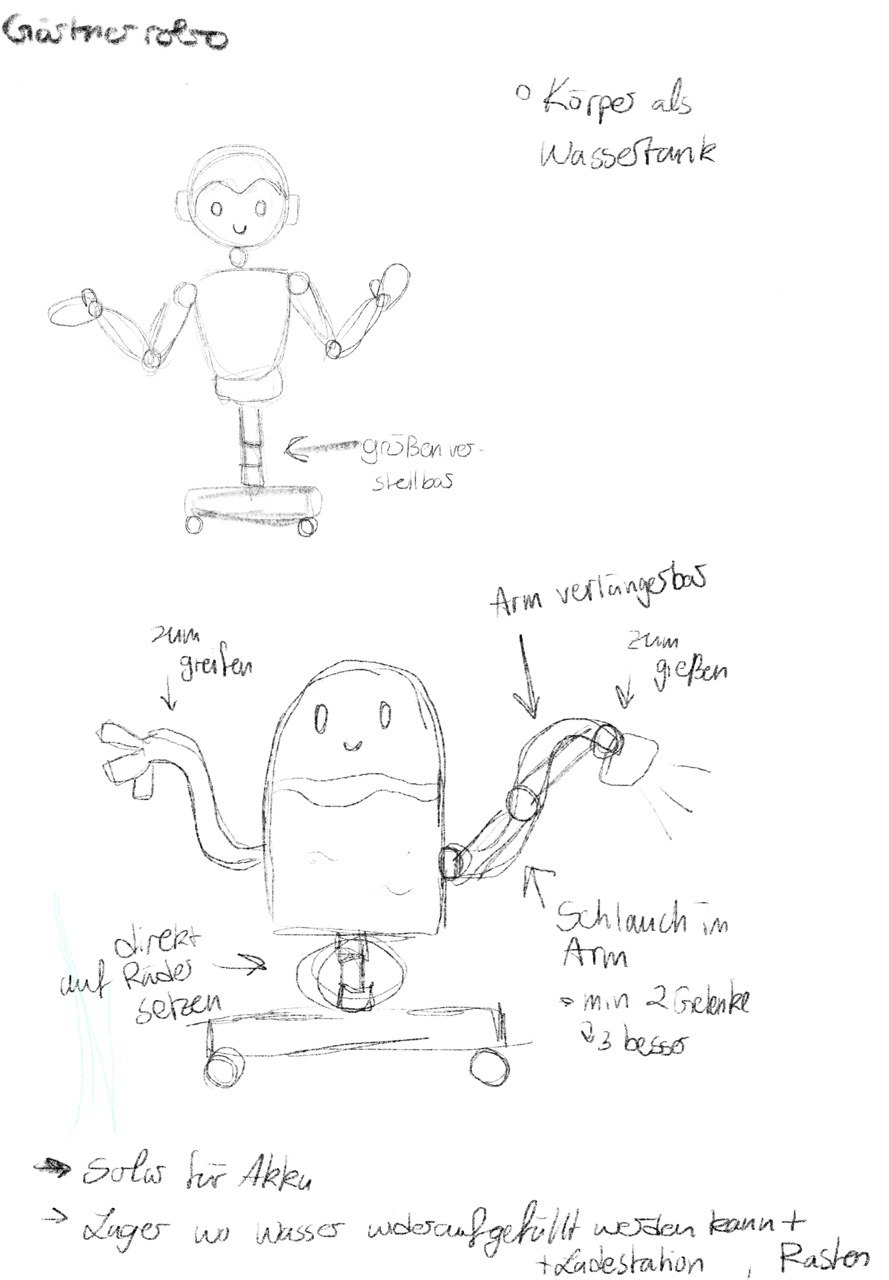 Gärtner robo
○ Körper als
Wassertank
größenver-
stellbar
Arm verlängerbar
zum
greifen
zum
gießen
direkt
auf Räder
setzen
Schlauch in
Arm
min 2 Gelenke
↳ 3 besser
→ Solar für Akku
→ Lager wo Wasser wideraufgefüllt werden kann +
+ Ladestation ,